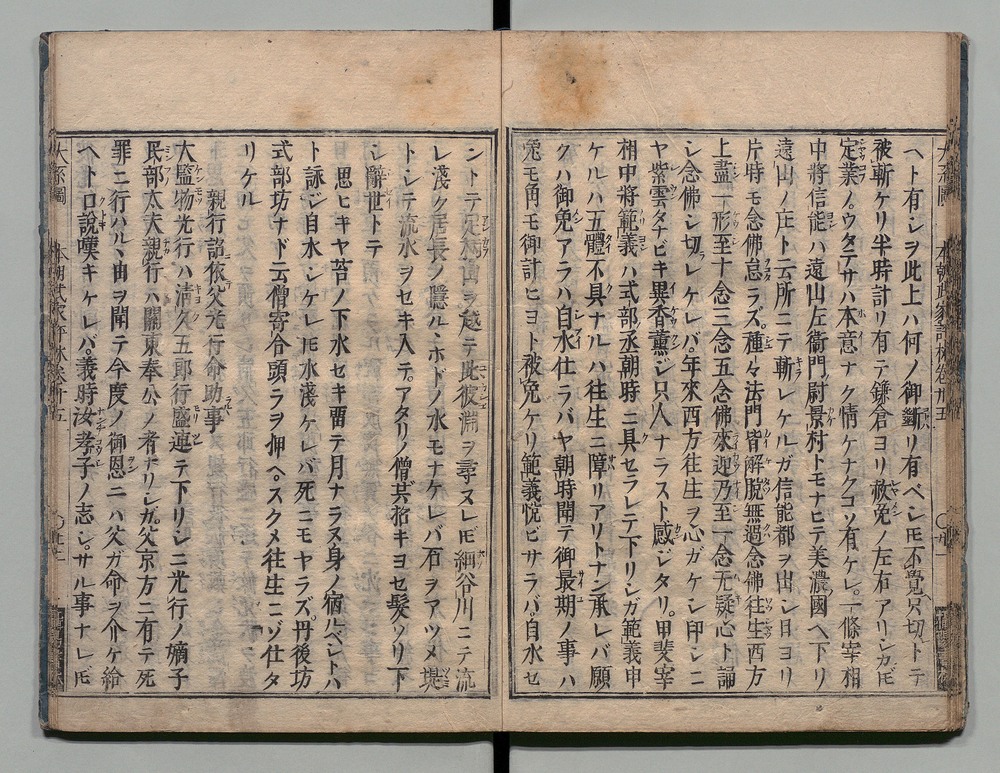 ヘト有シヲ此上ハ何ノ御歎リ有ベシ𪜈不覺只切トテ
被斬ケリ半時計リ有テ鎌倉ヨリ赦免ノ左右アリシカ𪜈
定業ノウタテサハ本意ナク情ケナクコソ有ケレ一條宰相
中將信能ハ遠山左衛門尉景村トモナヒテ美濃國ヘ下リ
遠山ノ庄ト云所ニテ斬レケルガ信能都ヲ出シ日ヨリ
片時モ念佛怠ラズ種々法門皆解脱無過念佛往生西方
上盡一形至十念三念五念佛來迎乃至一念无疑心ト誦
シ念佛シ切ラレケレバ年來西方往生ヲ心ガケシ印シニ
ヤ紫雲タナビキ異香薫ジ只人ナラスト感ジタリ甲斐宰
相中將範義ハ式部丞朝時ニ具セラレテ下リシガ範義申
ケルハ五體不具ナルハ往生ニ障リアリトナン承レバ願
クハ御免アラハ自水仕ラバヤ朝時聞テ御最期ノ事ハ
兎モ角モ御計ヒヨト被免ケリ範義悦ビサラバ自水セ
ントテ足柄山ヲ越テ此彼淵ヲ尋ヌレ𪜈細谷川ニテ流
レ淺ク居長ノ隱ルヽホドノ水モナケレバ石ヲアツメ堤
トシテ流水ヲセキ入テアタリノ僧共招キヨセ髮ソリ下
シ辭世トテ
思ヒキヤ苔ノ下水セキ留テ月ナラヌ身ノ宿ルベシトハ
ト詠ジ自水シケレ𪜈水淺ケレバ死ニモヤラズ丹後坊
式部坊ナド云僧寄合頭ラヲ押ヘスクメ往生ニゾ仕タ
リケル
親行詔依父光行命助事
大監物光行ハ清久五郎行盛連テ下リシニ光行ノ嫡子
民部太夫親行ハ關東奉公ノ者ナリシガ父京方ニ有テ死
罪ニ行ハルヽ由ヲ聞テ今度ノ御恩ニハ父ガ命ヲ介ケ給
ヘト口説嘆キケレバ義時汝孝子ノ志シサル事ナレ𪜈